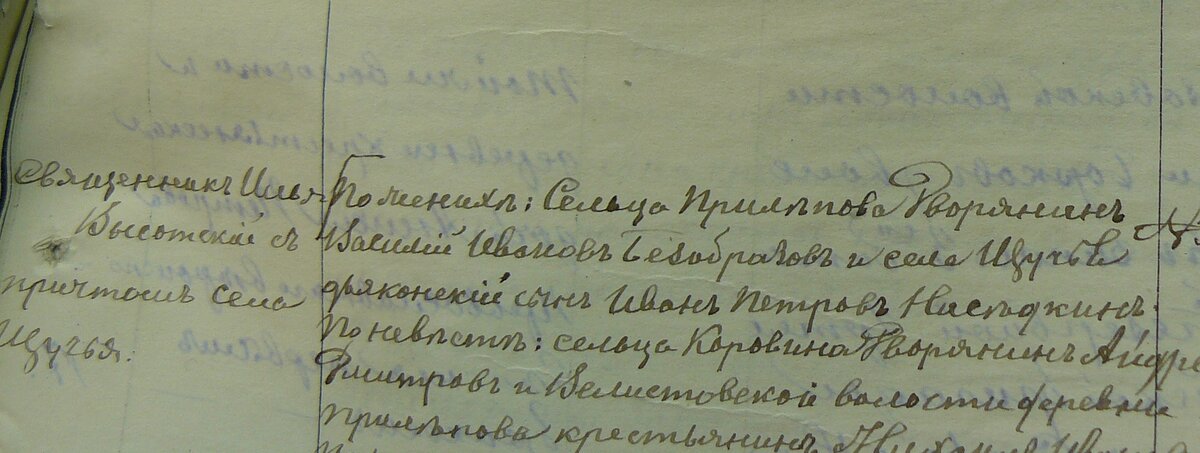 Священникъ Илья
Высотскій съ
причтомъ села
Щучья.
По женихѣ: Сельца Прилѣпова Дворянинъ
Василій Ивановъ Безобразовъ и села Щучья
дьяконскій сынъ Иванъ Петровъ Насѣдкинъ.
По невѣстѣ: сельца Коровина Дворянинъ Андре
Дмитровъ и Велистовской волости деревни
Прилѣпова крестьянинъ